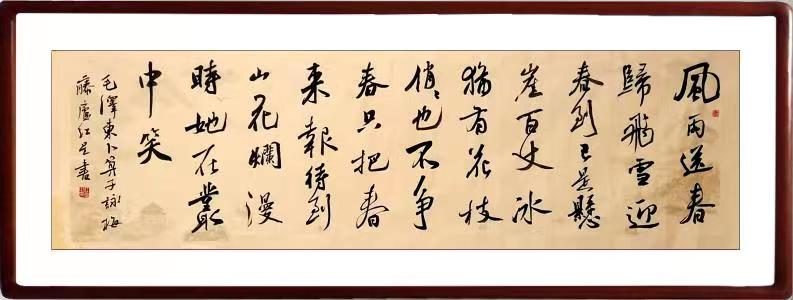 風雨送春
歸飛雪迎
春到已是懸
崖百丈冰
猶有花枝
俏〻也不争
春只把春
来報待到
山花爛漫
時她在叢
中笑
毛澤東卜算子詠梅
藤廬红書